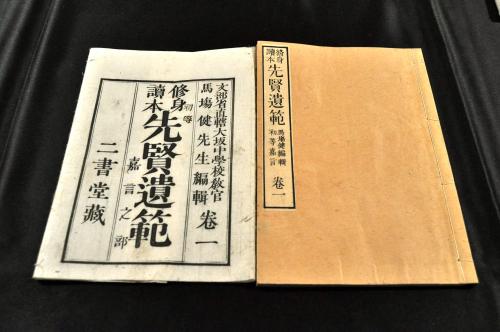 文部省直轄大坂中學校敎官
馬場健先生編輯 卷一
修身
讀本
初等
先賢遺範
嘉言之部
二書堂藏
修身
讀本
先賢遺範
馬場健編輯
初等嘉言
卷一